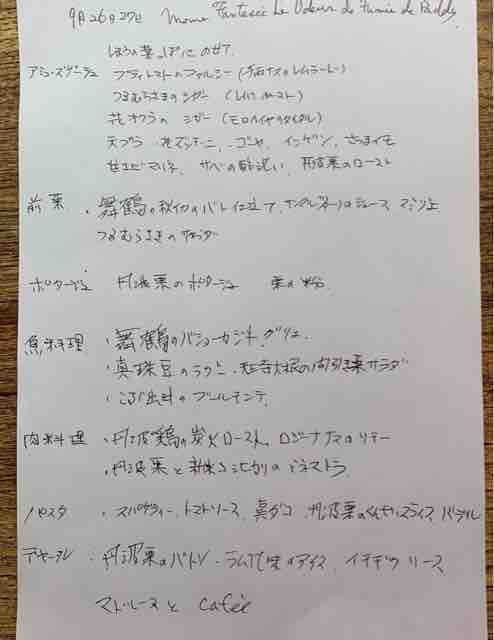 9月26日27日 Menu Fantasie de
ほうの葉っぱにのせて
アミューズグージュ プティトマトのファルシー (千両ナスのレムラード)
つるむらさきのシガー
花オクラのシガー (モロヘイヤのタイタル)
天プラ 花ズッキーニ、ゴーヤ、インゲン、さつまイモ
甘エビマリネ、サバの酢洗い、丹波栗のロースト
前菜 ・舞鶴の秋イカのパート仕立て、ジュース、
つるむらさきの
ポタージュ 丹波栗のポタージュ 栗の粉
魚料理 ・舞鶴のバショーカジキ、グリエ
・真珠豆のラグー、大根の間引き菜サラダ
・出汁のブールモンテ
肉料理 ・丹波鶏の炭火ロースト、ロジーナナスのソテー
・丹波栗と新米コシヒカリのミネストラ
パスタ ・スパゲティー、トマトソース、真ダコ、丹波栗のくんせいスライス、バジル
デセール ・丹波栗のパトン・ラム酒風味のアイス、イチヂクソース
マドレーヌと cafeè